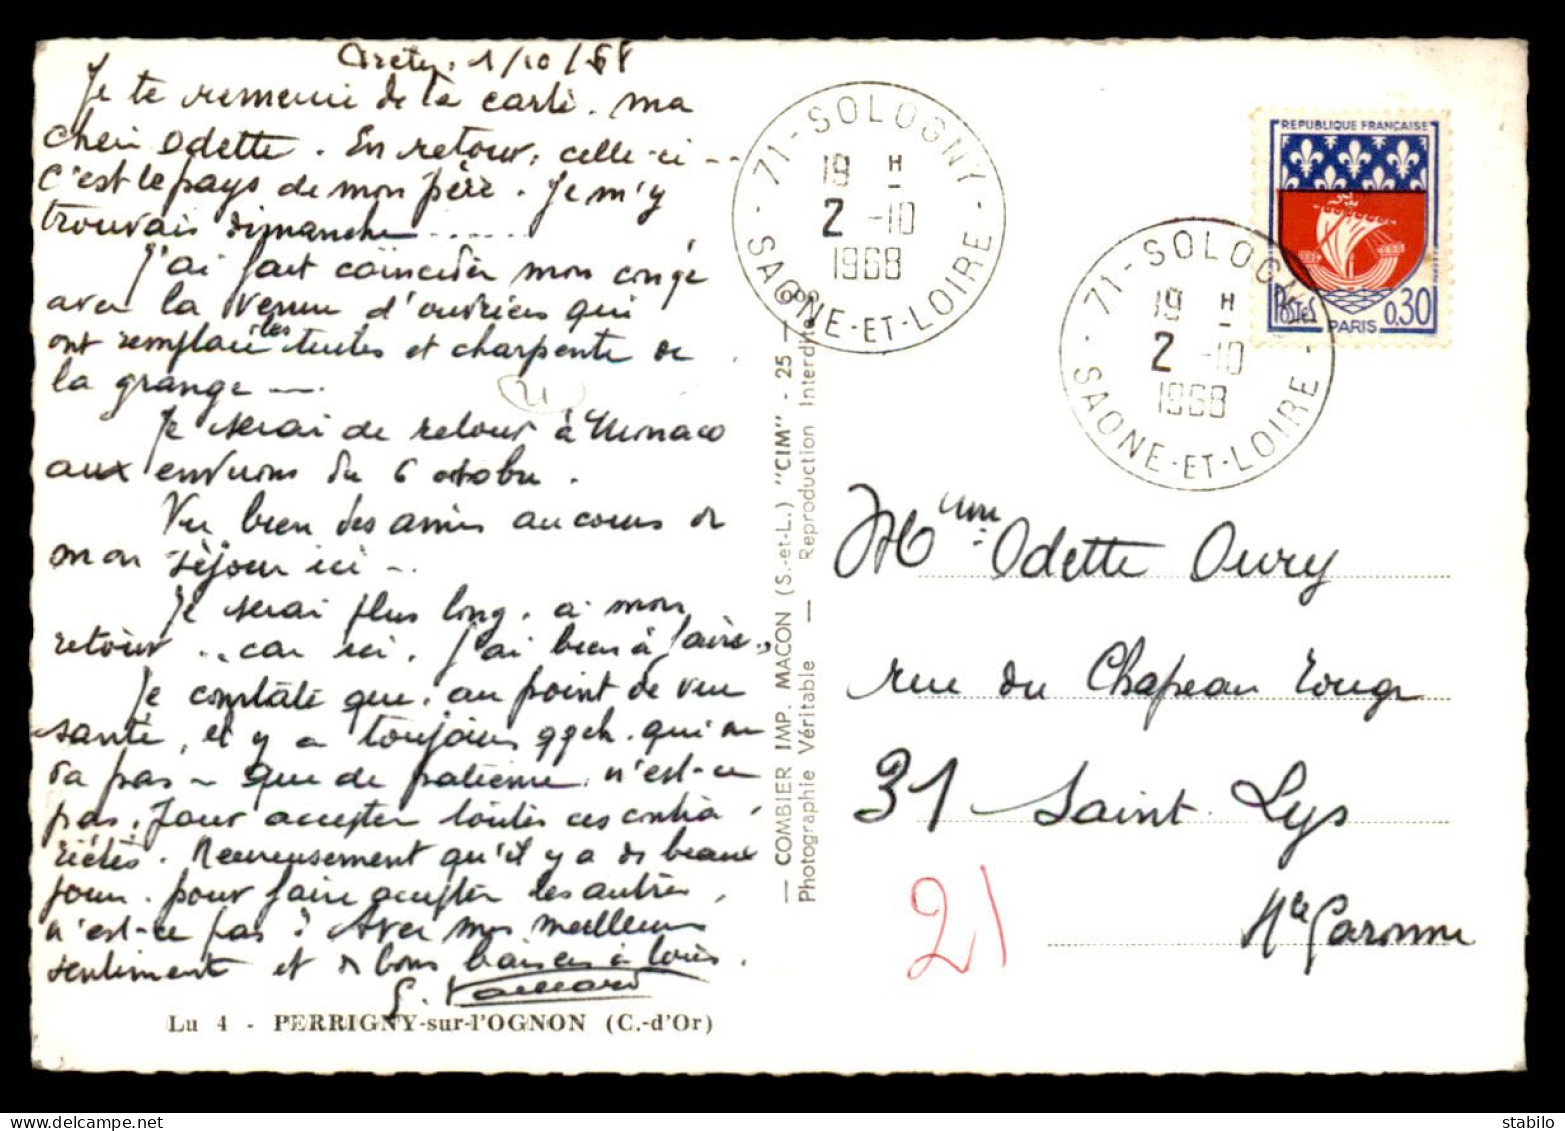 1/10/68
Je te remercie de la carte. ma
cheri Odette. En retour, celle-ci --
c'est le pays de mon père. Je m'y
trouvais dimanche ......
J'ai fait coïncider mon congé
avec la venue d'ouvriers qui
ont remplacé les tuiles et charpente de
la grange -.
21
Je serai de retour à Monaco
aux environs du 6 octobre.
Vu bien des amis au cours de
mon séjour ici -.
Je serai plus long. à mon
retour .. car ici, j'ai bien à faire.,
Je constate que, au point de vue
santé, il y a toujours qqch. qui ne
va pas - Que de patience, n'est-ce
pas, pour accepter toutes ces contra-
riétés. Heureusement qu'il y a de beaux
jours. pour faire accepter les autres,
n'est-ce pas? Avec mes meilleurs
sentiments et de bons baisers à tous.
Lu 4 - PERRIGNY-sur-l'OGNON (C.-d'Or)
— COMBIER IMP. MACON (S.-et-L.) "CIM" - 25 —
Photographie Véritable — Reproduction Interdite
71-SOLOGNY
19 H
2 -10
1968
SAONE-ET-LOIRE
REPUBLIQUE FRANÇAISE
POSTES
PARIS
0,30
71-SOLOGNY
19 H
2 -10
1968
SAONE-ET-LOIRE
Mme Odette Oury
rue du Chapeau Rouge
31 Saint-Lys
Hte Garonne
21
stabilo